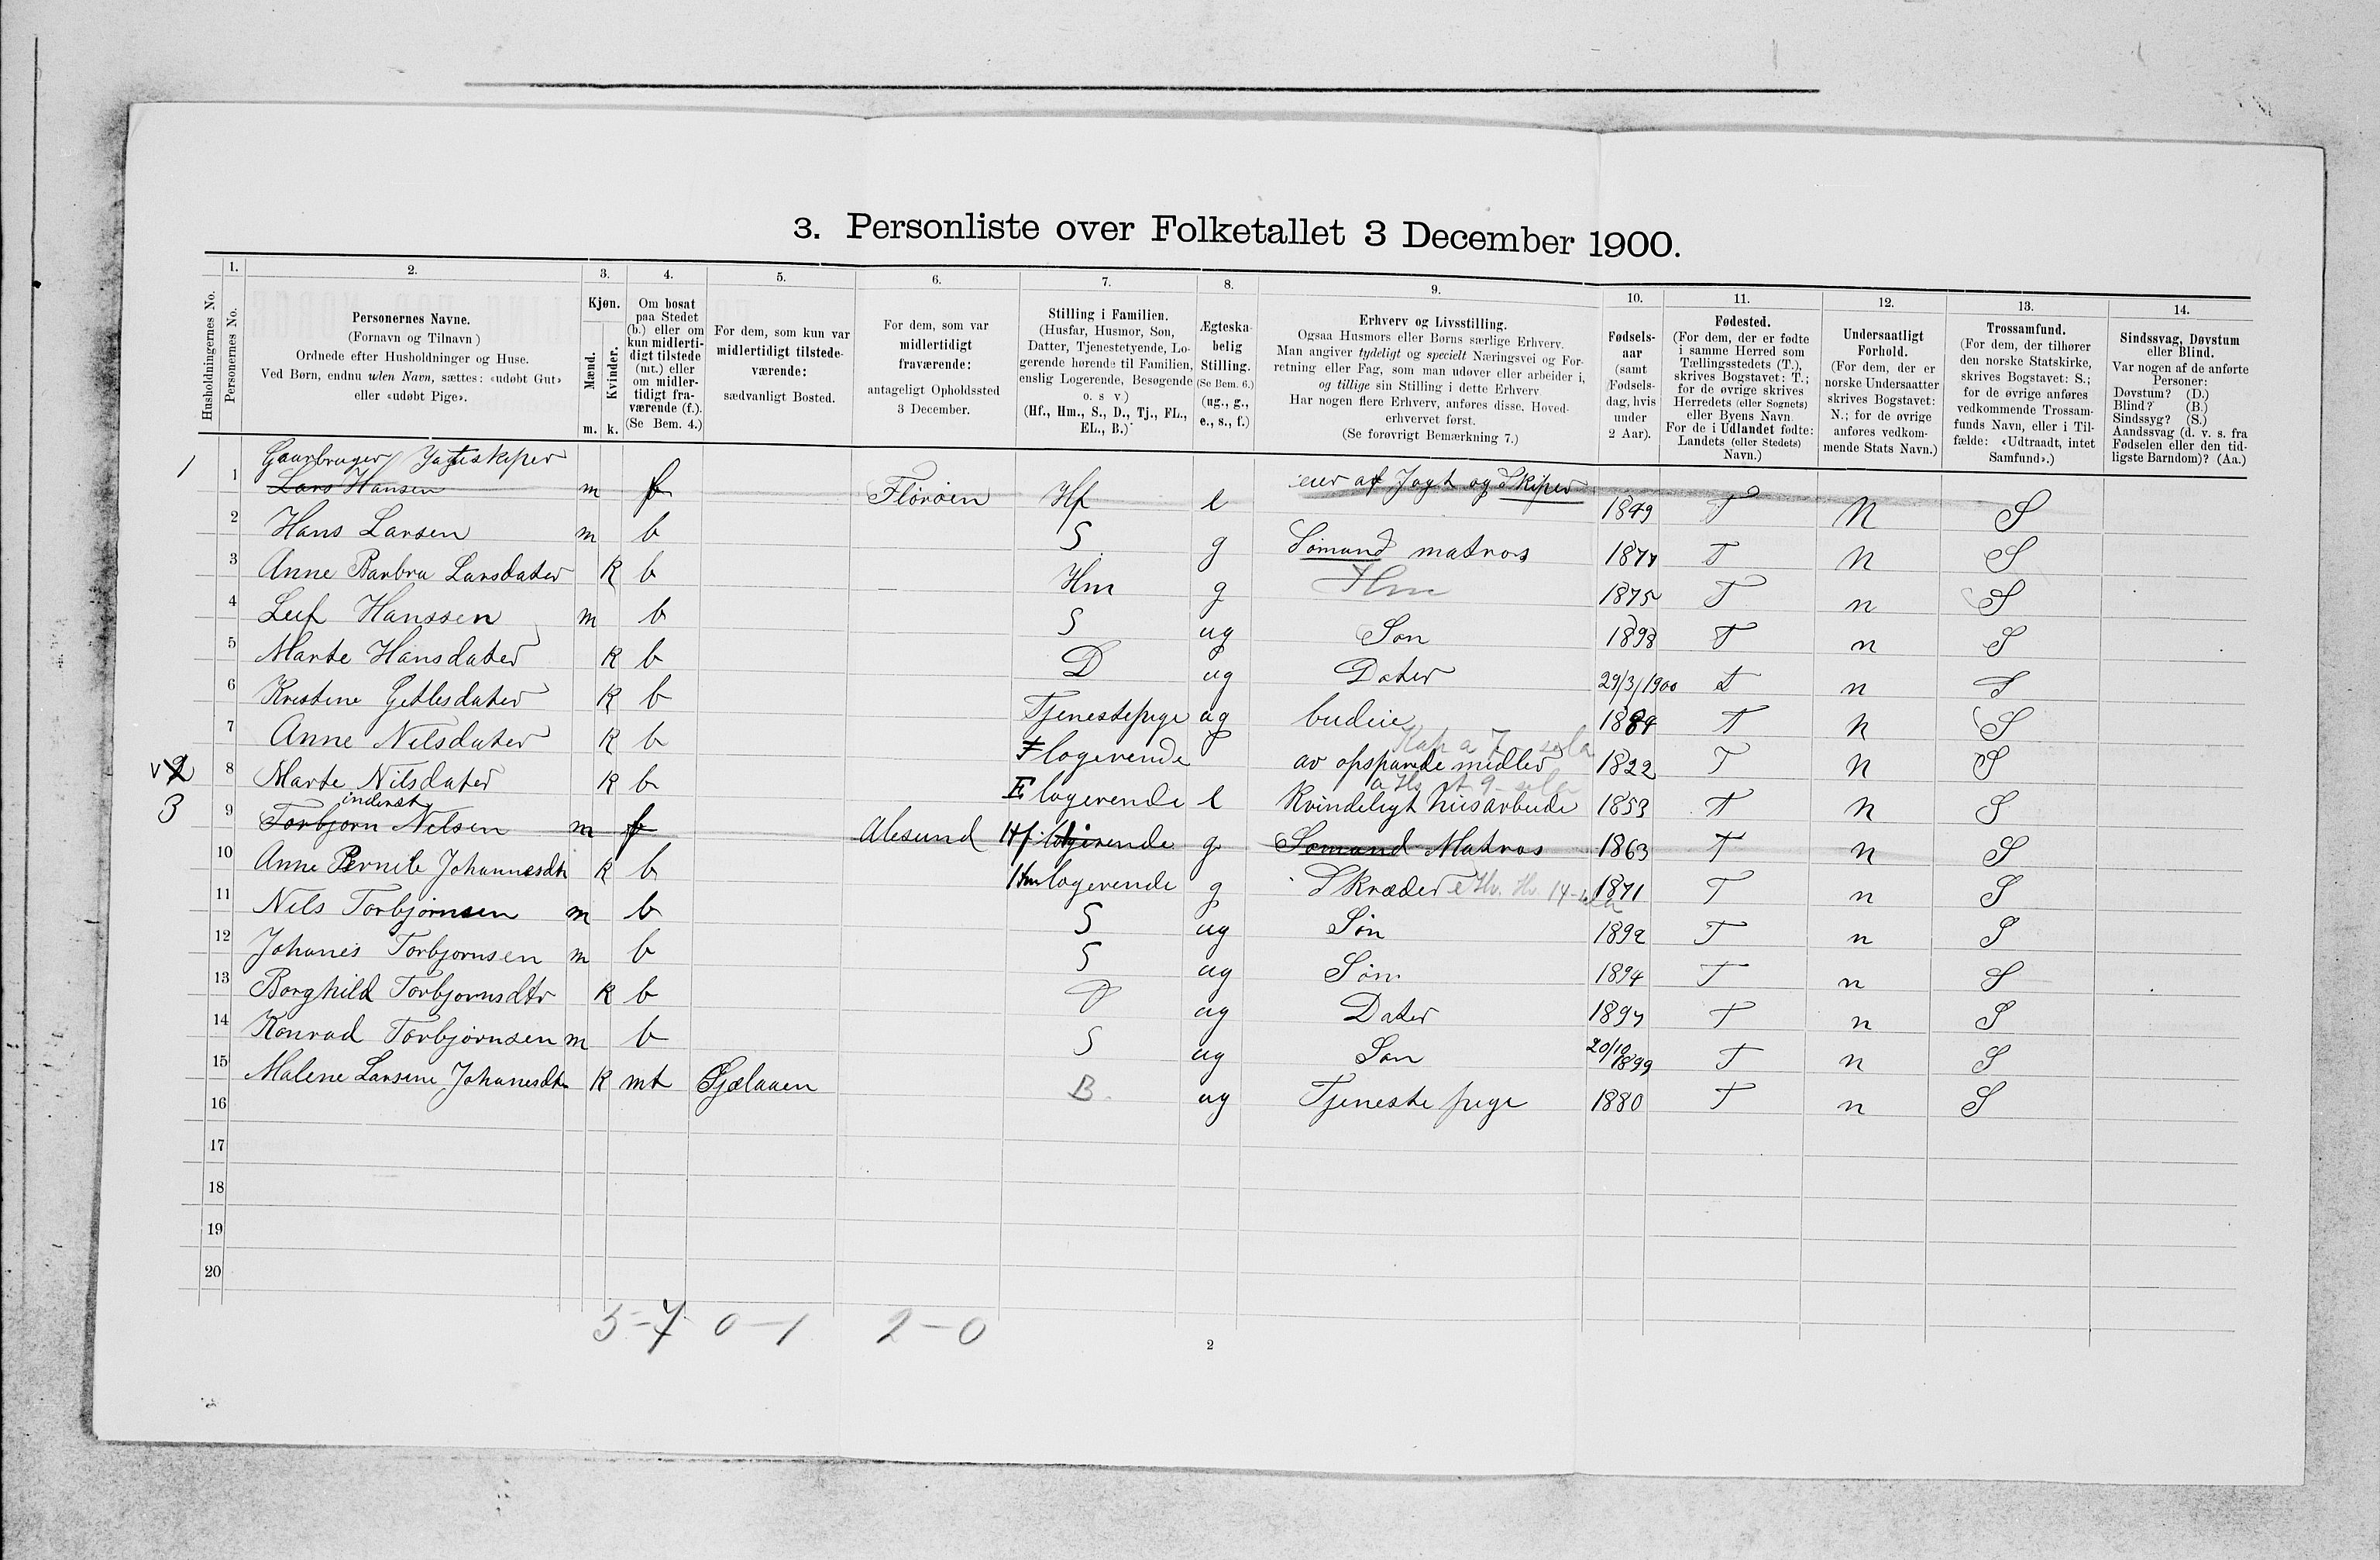 3. Personliste over Folketallet 3 December 1900.
1. 2. 3. 4. 5. 6. 7. 8. 9. 10. 11. 12. 13. 14.
Husholdningernes No.
Personernes No.
Personernes Navne.
(Fornavn og Tilnavn)
Ordnede efter Husholdninger og Huse.
Ved Børn, endnu uden Navn, sættes: «udøbt Gut»
eller «udøbt Pige».
Kjøn.
Mænd.
Kvinder.
m. k.
Om bosat
paa Stedet
(b.) eller om
kun midlerti-
digt tilstede
(mt.) eller
om midler-
tidigt fra-
værende (f.).
(Se Bem. 4.)
For dem, som kun var
midlertidigt tilstede-
værende:
sædvanligt Bosted.
For dem, som var
midlertidigt
fraværende:
antageligt Opholdssted
3 December.
Stilling i Familien.
(Husfar, Husmor, Søn,
Datter, Tjenestetyende, Lo-
gerende hørende til Familien,
enslig Logerende, Besøgende
o. s v)
(Hf., Hm., S., D., Tj., FL.,
EL., B.)
Ægteska-
belig
Stilling.
(Se Bem. 6.)
(ug., g.,
e., s., f.)
Erhverv og Livsstilling.
Ogsaa Husmors eller Børns særlige Erhverv.
Man angiver tydeligt og specielt Næringsvei og For-
retning eller Fag, som man udøver eller arbeider i,
og tillige sin Stilling i dette Erhverv.
Har nogen flere Erhverv, anføres disse. Hoved-
erhvervet først.
(Se forøvrigt Bemærkning 7.)
Fødsels-
aar
(samt
Fødsels-
dag, hvis
under
2 Aar).
Fødested.
(For dem, der er fødte
i samme Herred som
Tællingsstedets (T.),
skrives Bogstavet: T.;
for de øvrige skrives
Herredets (eller Sognets)
eller Byens Navn.
For de i Udlandet fødte:
Landets (eller Stedets)
Navn.)
Undersaatligt
Forhold.
(For dem, der er
norske Undersaatter
skrives Bogstavet:
N.; for de øvrige
anføres vedkom-
mende Stats Navn.)
Trossamfund.
(For dem, der tilhører
den norske Statskirke,
skrives Bogstavet: S.;
for de øvrige anføres
vedkommende Trossam-
funds Navn, eller i Til-
fælde: «Udtraadt, intet
Samfund».)
Sindssvag, Døvstum
eller Blind.
Var nogen af de anførte
Personer:
Døvstum? (D.)
Blind? (B.)
Sindssyg? (S.)
Aandssvag (d. v. s. fra
Fødselen eller den tid-
ligste Barndom)? (Aa.)
Gaarbruger Jagteskiper
1 1 Lars Hansen m f Florøen Hf e eier af Jagt og Skiper 1849 T N S
2 Hans Larsen m b S g Sømand matros 1877 T N S
3 Anne Barbra Larsdater K b Hm g Hm 1875 T n S
4 Leif Hanssen m b S ug Søn 1898 T n S
5 Marte Hansdater K b D ug Dater 29/3/1900 t n S
6 Kristine Getlesdater K b Tjenestepige ug budeie 1884 T N S
7 Anne Nilsdater K b F logerende av opsparede midler 1822 T N S
2 8 Marte Nilsdater K b E logerende e Kvindeligt husarbeide 1853 T N S
inderst
3 9 Torbjørn Nelsen m f Alesund Hf logerende g Sømand Matros 1863 T n S
10 Anne Pernile Johannesdtr K b Hm logerende g Skræder 1871 T n S
11 Nils Torbjørnsen m b S ug Søn 1892 T n S
12 Johanes Torbjørnsen m b S ug Søn 1894 T n S
13 Borghild Torbjørnsdtr K b D ug Dater 1897 T n S
14 Konrad Torbjørnsen m b S ug Søn 20/10 1899 T n S
15 Malene Larsine Johanesdtr K mt Gjelaaen B. ug Tjeneste pige 1880 T n S
16
17
18
19
20
5-7 0-1 2-0
2